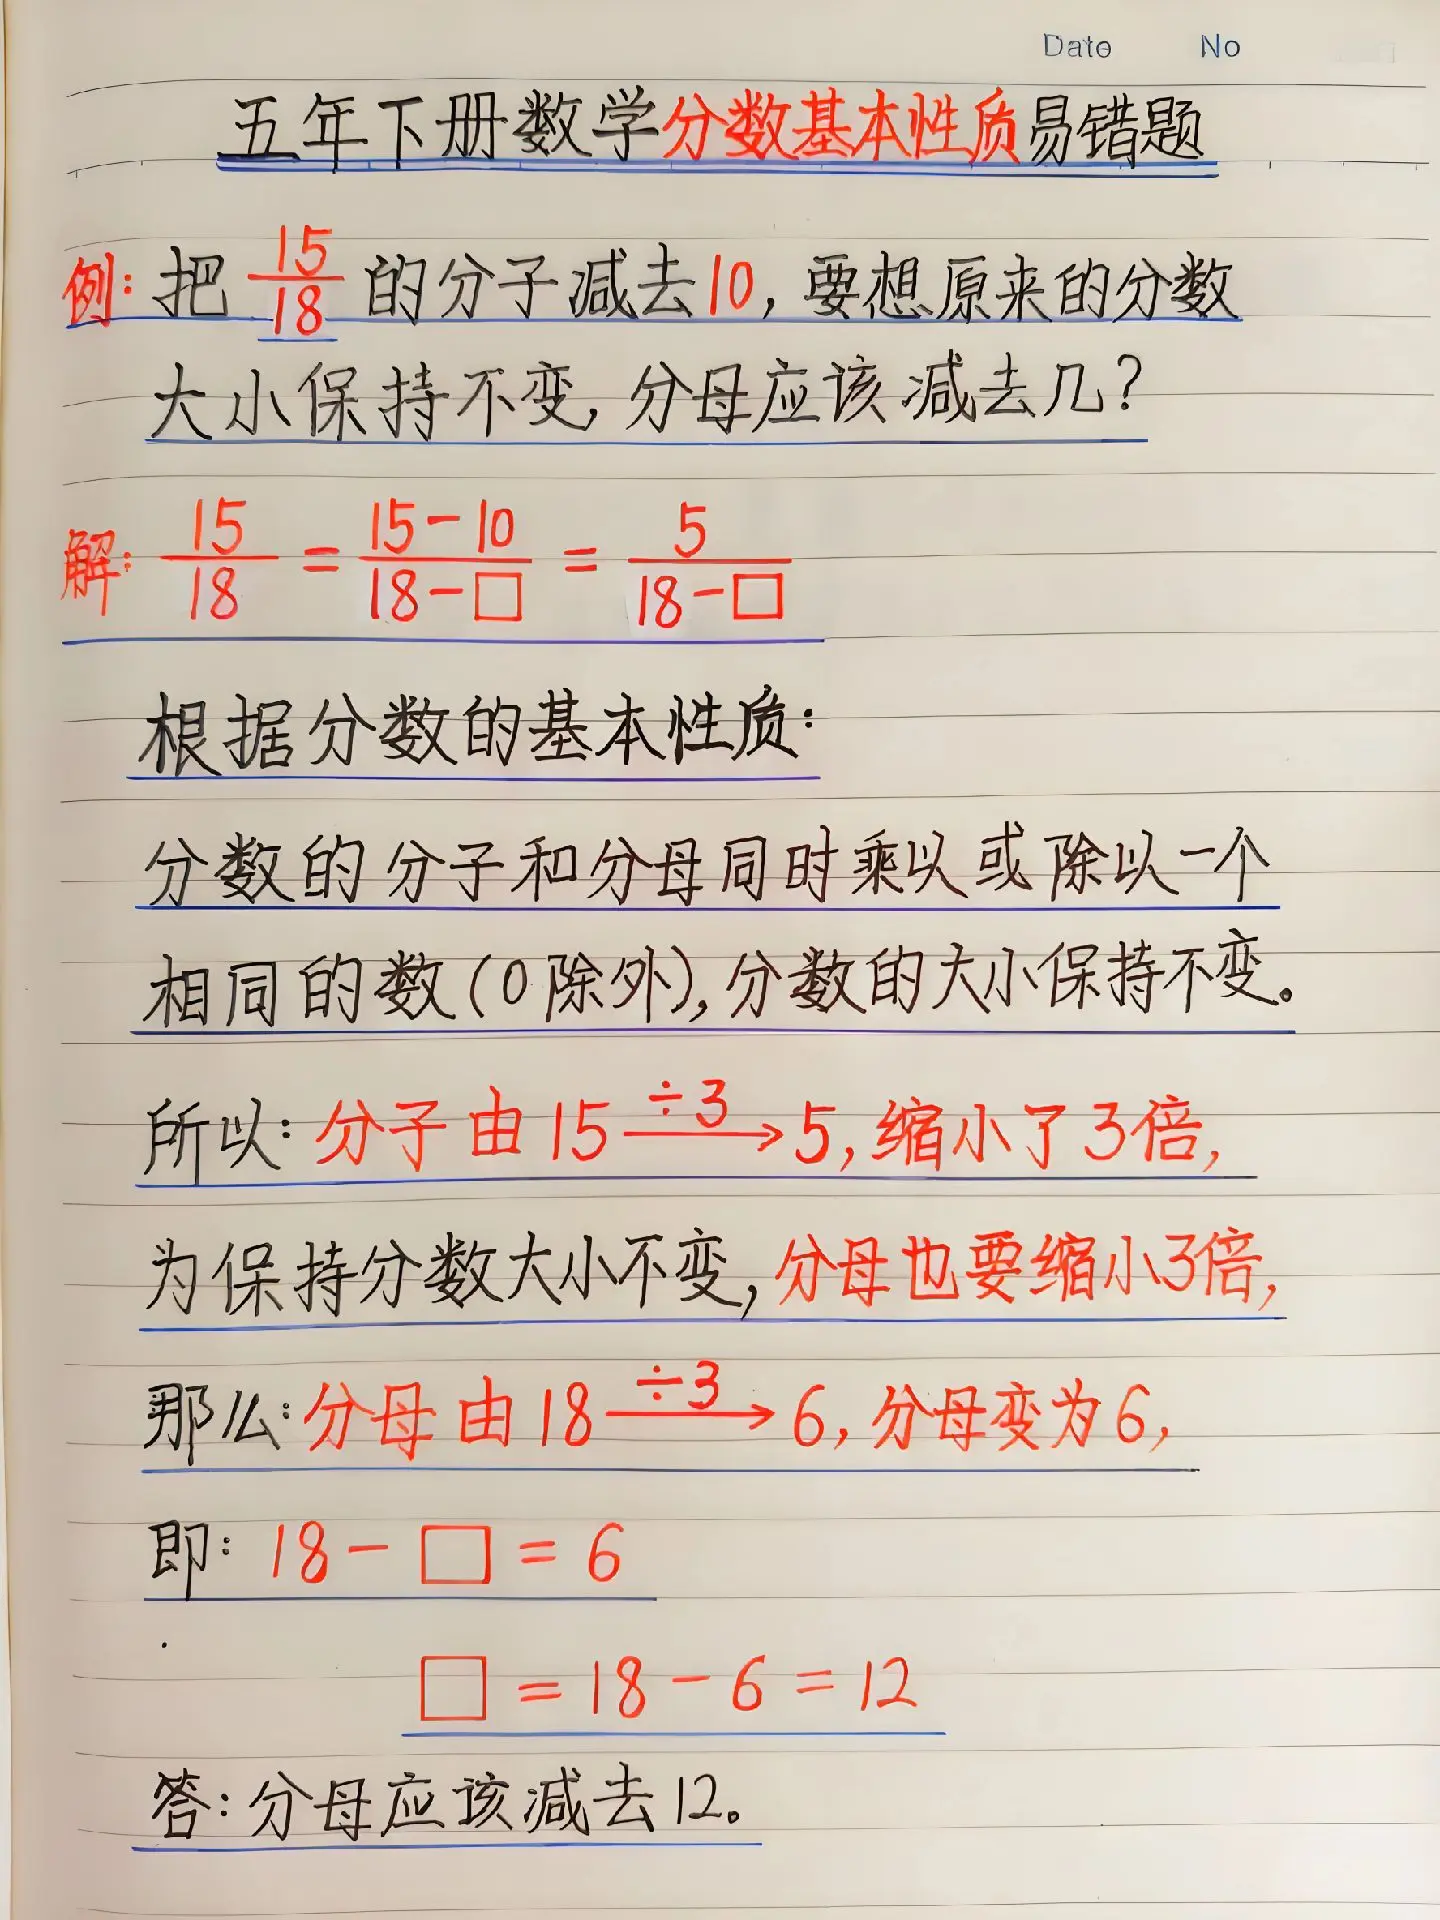 Date No
五年下册数学分数基本性质易错题
例: 把 15/18 的分子减去10, 要想原来的分数
大小保持不变, 分母应该减去几?
解: 15/18 = (15-10)/(18-□) = 5/(18-□)
根据分数的基本性质:
分数的分子和分母同时乘以或除以一个
相同的数(0除外), 分数的大小保持不变。
所以: 分子由 15 ÷3→ 5, 缩小了3倍,
为保持分数大小不变, 分母也要缩小3倍,
那么: 分母由 18 ÷3→ 6, 分母变为6,
即: 18 - □ = 6
□ = 18 - 6 = 12
答: 分母应该减去12。